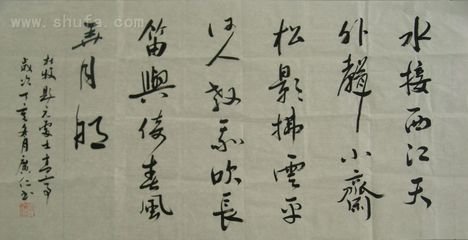 www.shufa.com
水接西江天
外聲小齋
松影拂雲平
何人教我吹長
笛與倚春風
弄月明
杜牧題元處士高亭
歲次丁亥冬月廣仁書